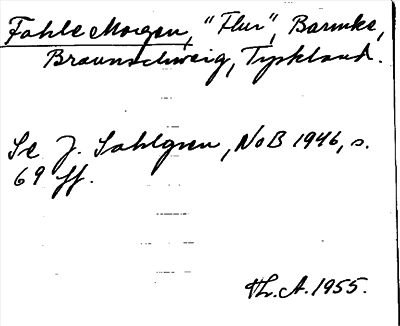 Fahle Morgen, "Flur", Barmke,
Braunschweig, Tyskland.
Se J. Sahlgren, NoB 1946, s.
69 ff.
Th. A. 1955.